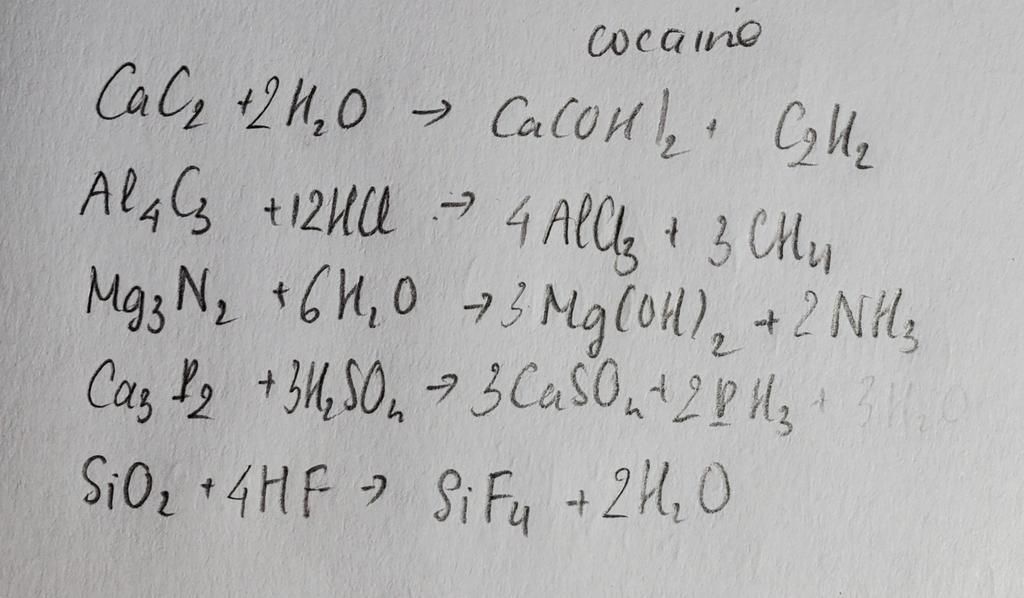 cocaine
CaC₂ +2H₂O → Ca(OH)₂ + C₂H₂
Al₄C₃ +12HCl → 4AlCl₃ + 3CH₄
Mg₃N₂ +6H₂O → 3Mg(OH)₂ + 2NH₃
Ca₃P₂ +3H₂SO₄ → 3CaSO₄ + 2PH₃ + 3H₂O
SiO₂ + 4HF → SiF₄ + 2H₂O